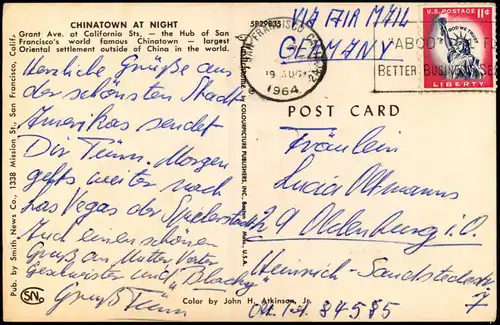 CHINATOWN AT NIGHT
Grant Ave. at California Sts. — the Hub of San
Francisco's world famous Chinatown — largest
Oriental settlement outside of China in the world.
Herzliche Grüße aus
der schönsten Stadt
Amerikas sendet
Dir Timm. Morgen
geht's weiter nach
Las Vegas der Spielerstadt
Auch einen schönen
Gruß an Mutter Vater
Geschwister und "Blacky"
Gruß Timm
Pub. by Smith News Co., 1338 Mission St., San Francisco, Calif.
SN
5B29833
by COLOURPICTURE PUBLISHERS, INC., Boston, Mass., U.S.A.
Color by John H. Atkinson, Jr.
VIA AIR MAIL
GERMANY
SAN FRANCISCO CALIF.
19 AUG
1964
"ABCD"
BETTER BUSINESS
U.S. POSTAGE 11¢
IN GOD WE TRUST
LIBERTY
POST CARD
Fräulein
Lucia Oltmanns
29 Oldenburg i.O.
Heinrich-
7
84585